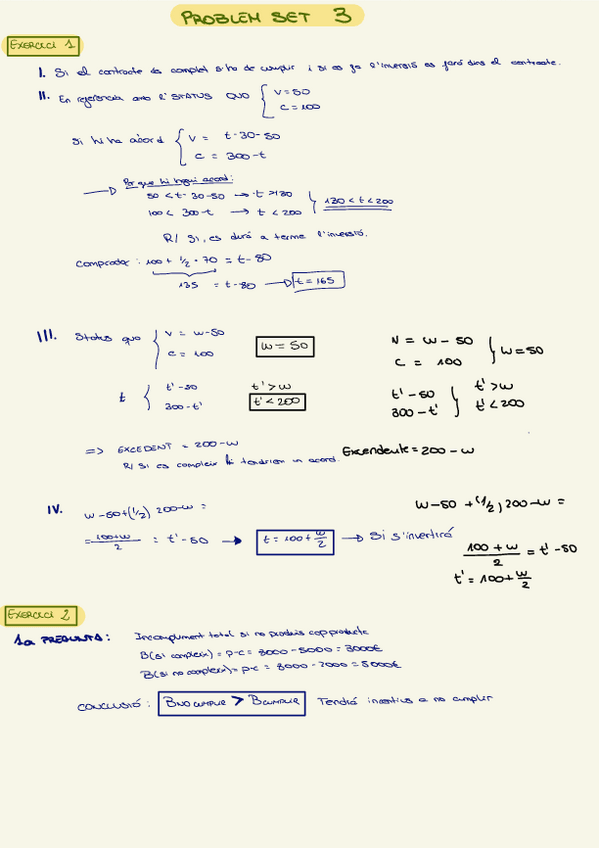 PROBLEM SET 3
EXERCICI 1
I. Si el contracte és complet s'ha de cumplir i si es fa l'inversió es farà dins el contracte.
II. En referència amb l'STATUS QUO { V = 50
C = 100
Si hi ha acord { V = t-30-50
C = 300-t
Per que hi hagui acord:
50 < t-30-50 → t > 130
100 < 300-t → t < 200 } 130 < t < 200
R/ Si, es durà a terme l'inversió.
Comprador: 100 + 1/2 · 70 = t-80
135 = t-80 → t = 165
III. Status quo { V = w-50
C = 100
w = 50
V = w - 50
C = 100 } w = 50
t { t'-50
300-t'
t' > w
t' < 200
t' - 50
300 - t' } t' > w
t' < 200
=> EXCEDENT = 200-w
R/ Si es compleix tendrien un acord.
Excendente = 200 - w
IV. w-50+(1/2) 200-w =
= 100+w/2 = t'-50 → t = 100 + w/2 → Si s'invertirà
w-50 + (1/2) 200-w =
100 + w/2 = t'-50
t' = 100 + w/2
EXERCICI 2
1a PREGUNTA: Incompliment total si no produeix cap producte
B(si compleix) = p-c = 8000 - 5000 = 3000€
B(si no compleix) = p-c = 8000 - 7000 = 5000€
CONCLUSIÓ: BNO CUMPLIR > BCUMPLIR Tendrà incentius a no cumplir